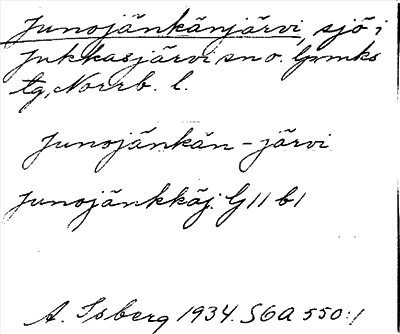 Junojänkänjärvi, sjö i
Jukkasjärvi sn o. lpmks
tg, Norrb. l.
Junojänkän-järvi
Junojänkkäj. G 11 b 1
A. Isberg 1934. SGA 550:1